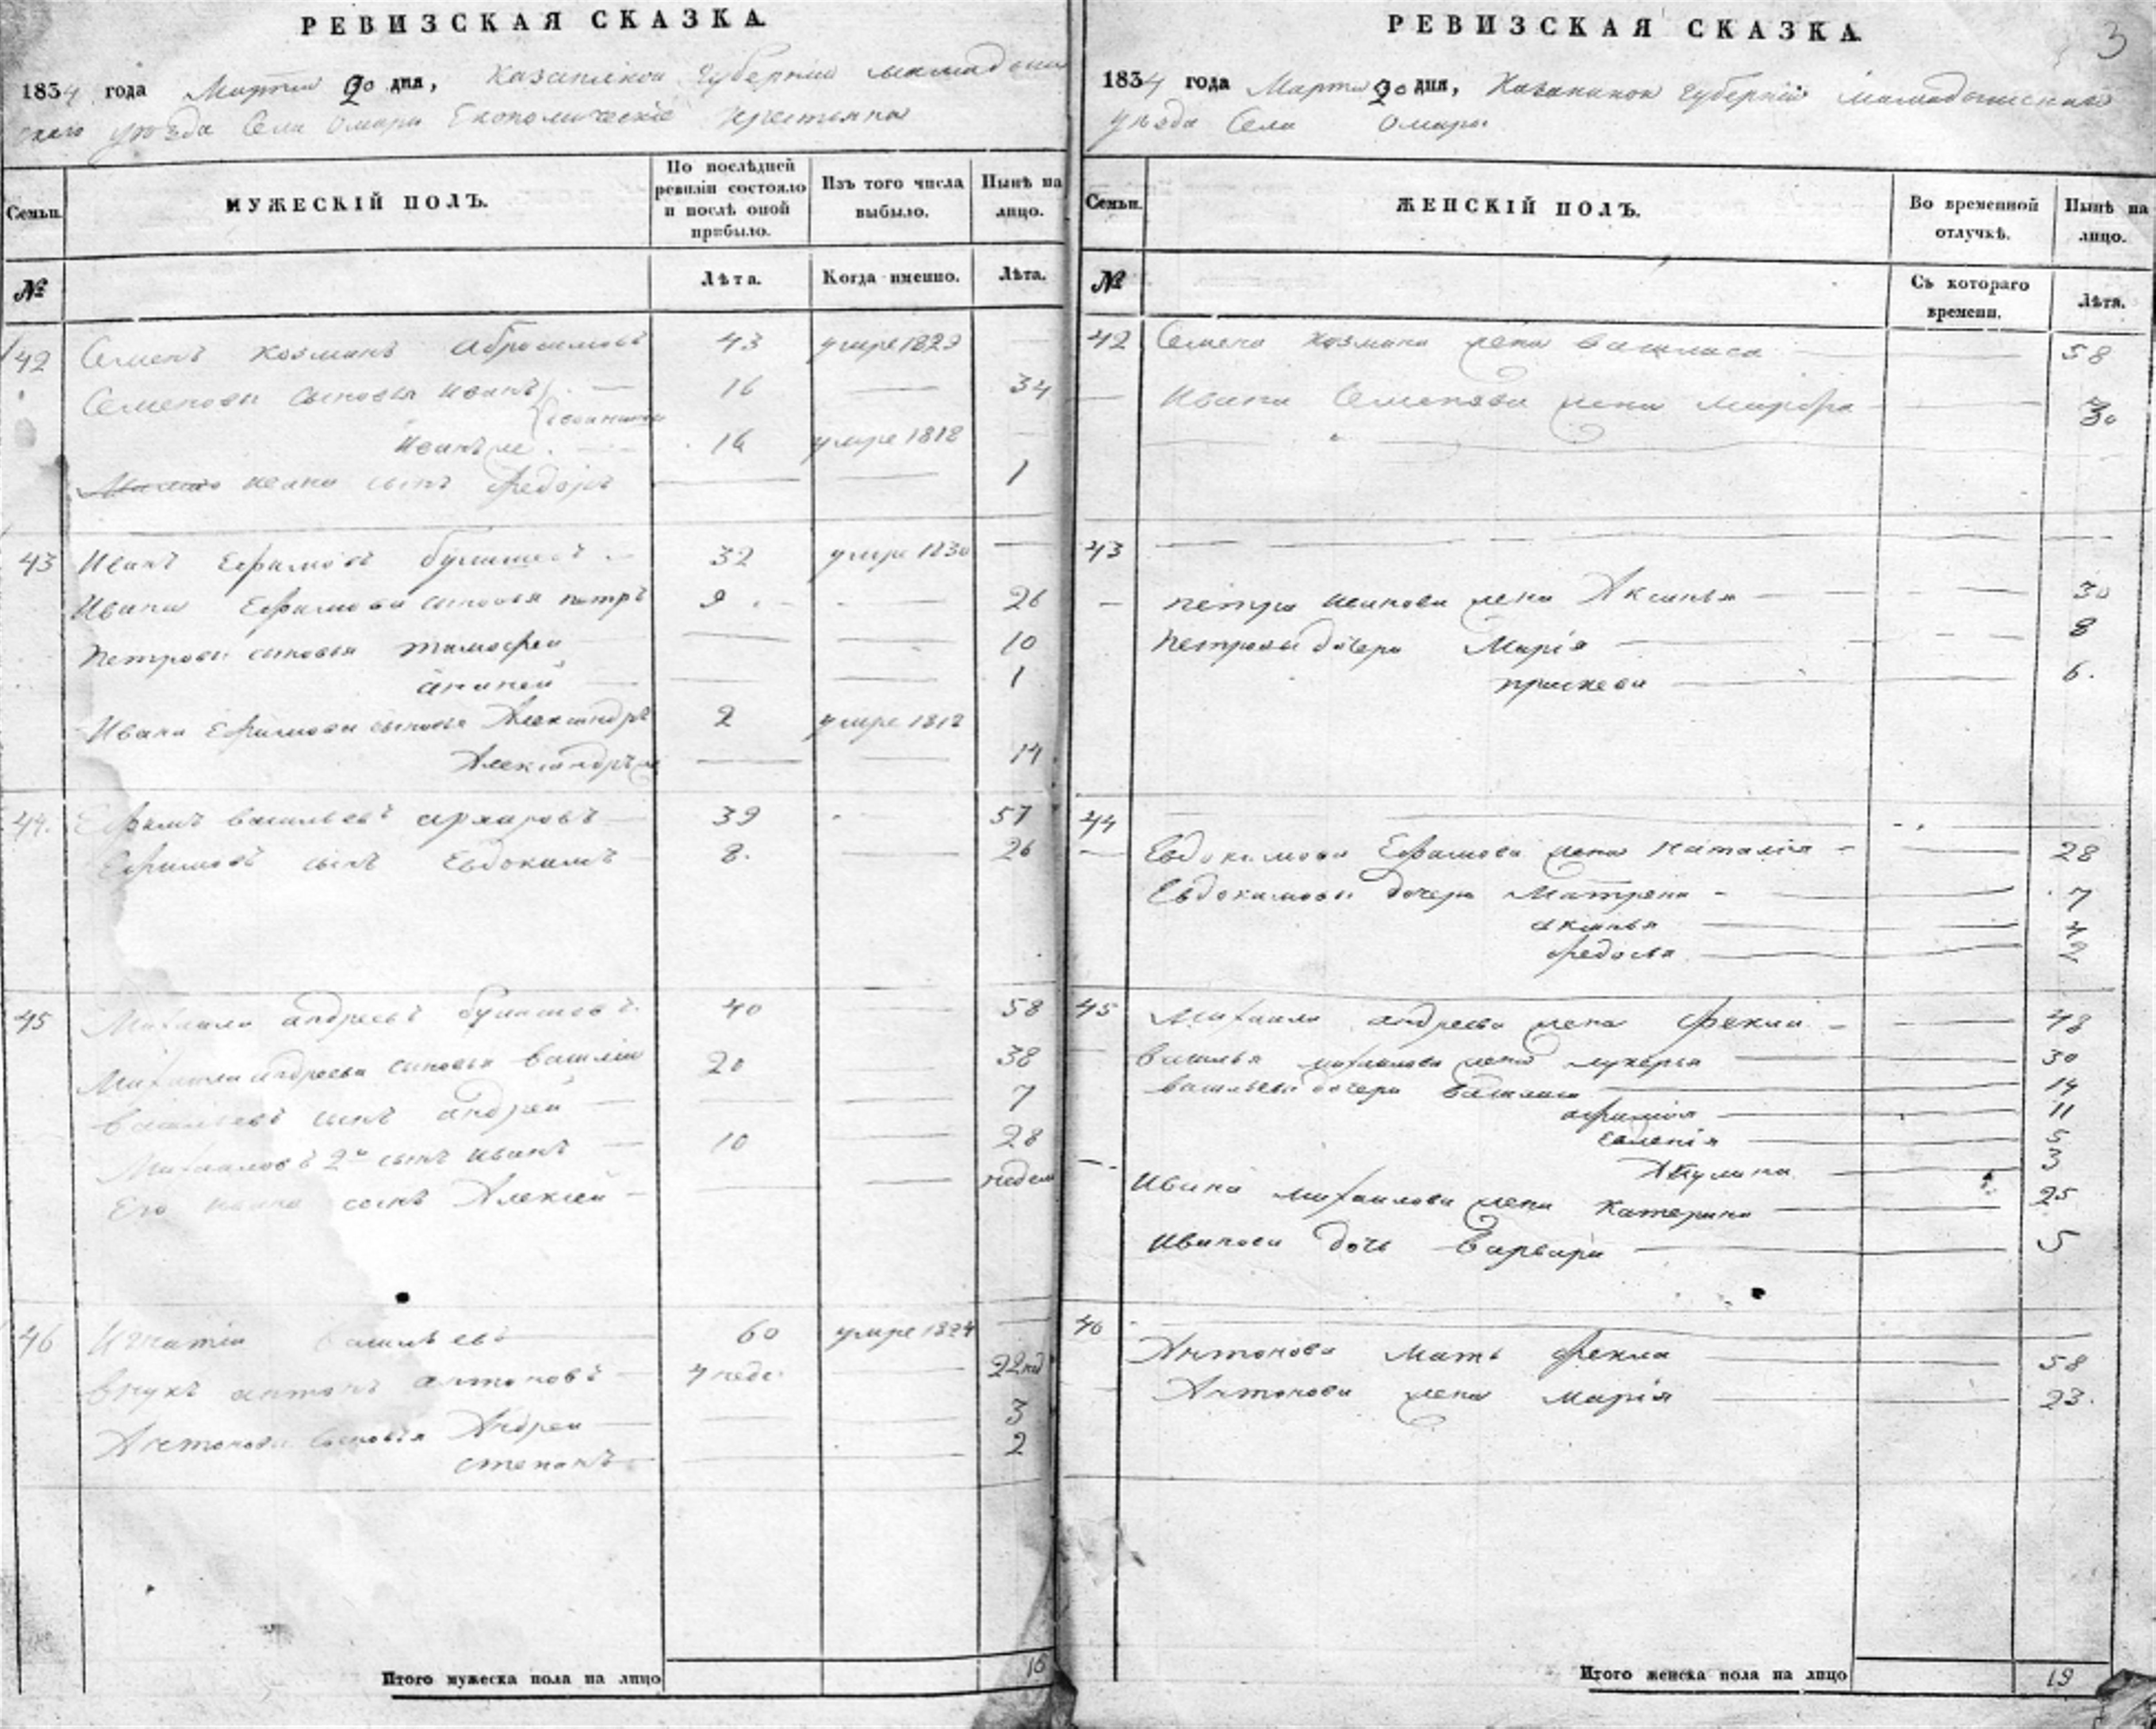 РЕВИЗСКАЯ СКАЗКА.
1834 года Марта 20 дня, Казанской Губернии мамадыш
скаго уезда Села Омари Економическіе крестьяна
Семьи. МУЖЕСКІЙ ПОЛЪ. По послѣдней ревизіи состояло и послѣ оной прибыло. Изъ того числа выбыло. Нынѣ на лицо.
№ Лѣта. Когда именно. Лѣта.
42 Семенъ Козминъ Абросимовъ 43 умре 1829
Семенови сыновья Иванъ 16 34
Иванъ же 14 умре 1818
Ивана сынъ Федоръ 1
43 Иванъ Ефимовъ 32 умре 1830
Ивана Ефимова сыновья петръ 9 26
Петрови сыновья тимофеи 10
ананеи 1
Ивана Ефимова сыновья Александръ 2 умре 1818
Александръ же 14
44. Ефимъ васильевъ архаровъ 39 57
Ефимовъ сынъ Евдокимъ 8. 26
45 Михаила андреевъ 40 58
Михаила андреева сыновья василіи 20 38
васильевъ сынъ андреи 7
Михаиловъ 2й сынъ иванъ 10 28
Его ивана сынъ Алексеи недели
46 Игнатіи васильевъ 60 умре 1824
внукъ антонъ антоновъ 4 неде. 22
Антонови сыновья Андреи 3
степанъ 2
Итого мужеска пола на лицо 16
РЕВИЗСКАЯ СКАЗКА. 3
1834 года Марта 20 дня, Казанской Губерніи мамадышскаго
уезда Села Омары
Семьи. ЖЕНСКІЙ ПОЛЪ. Во временной отлучкѣ. Нынѣ на лицо.
№ Съ котораго времени. Лѣта.
42 Семена Козмина жена василиса 58
Ивана Семенова жена марфра 30
43
петра иванова жена Аксинья 30
Петровы дочери Марія 8
прасковя 6.
44
Евдокимова Ефимова жена наталія 28
Евдокимови дочери Матрена 7
аксинья 4
федосья 2
45 Михаила андреева жена фекла 48
василья михаилова жена лукерья 30
васильеви дочери василиса 14
афимія 11
евгенія 5
Акулина 3
Ивана михаилова жена катерина 25
Иванова дочь Варвара 5
46
Антонова мать фекла 58
Антонова жена марія 23.
Итого женска пола на лицо 19